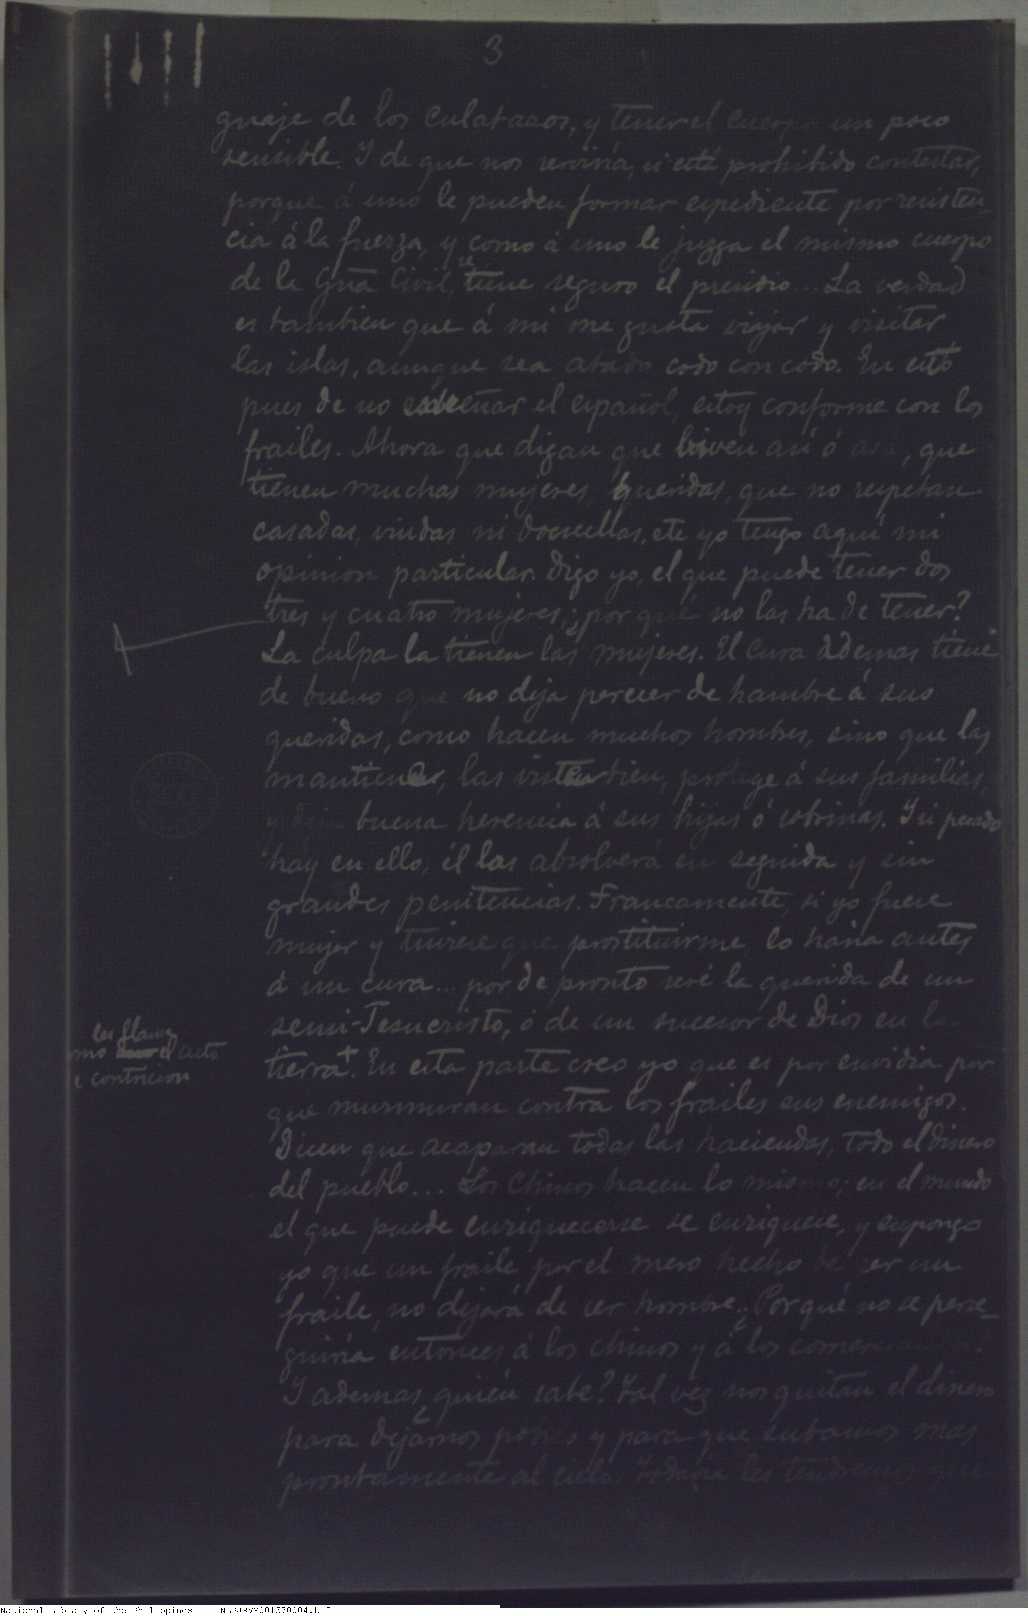 3
guaje de los culatazos, y tener el cuerpo un poco
sensible. Y de que nos serviria, si está prohibido contestar,
porque á uno le pueden formar espediente por resisten-
cia á la fuerza, y como á uno le juzga el mismo cuerpo
de la Gña Civil, se tiene seguro el presidio... La verdad
es tambien que á mi me gusta viajar y visitar
las islas, aunque sea atado codo con codo. En esto
pues de no enseñar el español, estoy conforme con los
frailes. Ahora que digan que viven asi ó asá, que
tienen muchas mujeres, queridas, que no respetan
casadas, viudas ni doncellas, etc yo tengo aquí mi
opinion particular. Digo yo, el que puede tener dos
tres y cuatro mujeres, ¿por qué no las ha de tener?
La culpa la tienen las mujeres. El cura ademas tiene
de bueno que no deja perecer de hambre á sus
queridas, como hacen muchos hombres, sino que las
mantiene, las viste bien, protege á sus familias,
y deja buena herencia á sus hijas ó sobrinas. Y si pecado
hay en ello, él las absolverá en seguida y sin
grandes penitencias. Francamente, si yo fuese
mujer y tuviese que prostituirme, lo haria antes
á un cura... por de pronto seré la querida de un
semi-Jesucristo, ó de un sucesor de Dios en la
les llama
el acto
contricion
tierra+. En esta parte creo yo que es por envidia por
que murmuran contra los frailes sus enemigos.
Dicen que acaparan todas las haciendas, todo el dinero
del pueblo... Los Chinos hacen lo mismo; en el mundo
el que puede enriquecerse se enriquece, y supongo
yo que un fraile, por el mero hecho de ser un
fraile, no dejará de ser hombre. ¿Por qué no se perse-
guiria entonces á los chinos y á los comerciantes.
Y ademas, ¿quién sabe? Tal vez nos quitan el dinero
para dejarnos pobres y para que subamos mas
prontamente al cielo. Todavia les tendremos que